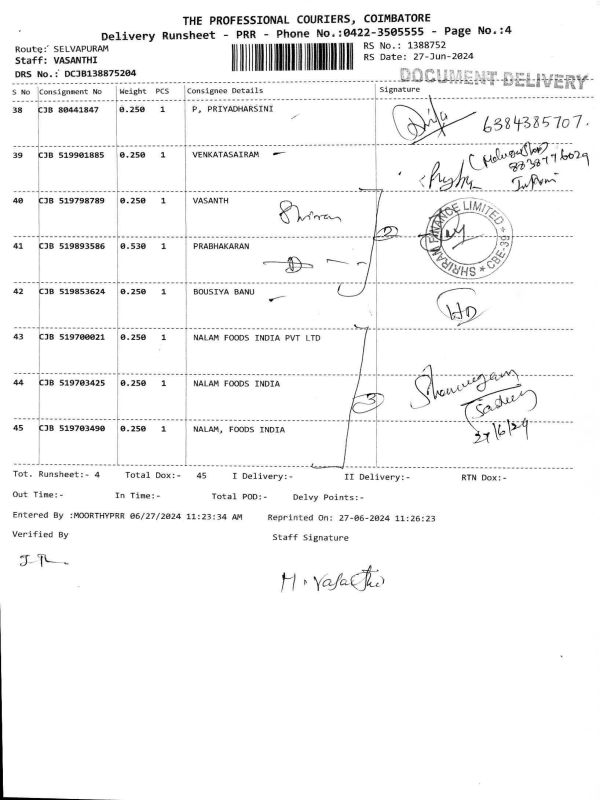 THE PROFESSIONAL COURIERS, COIMBATORE
Delivery Runsheet - PRR - Phone No.:0422-3505555 - Page No.:4
Route: SELVAPURAM
RS No.: 1388752
Staff: VASANTHI
RS Date: 27-Jun-2024
DRS No.: DCJB138875204
DOCUMENT DELIVERY
S No Consignment No Weight PCS Consignee Details Signature
38 CJB 80441847 0.250 1 P, PRIYADHARSINI
6384385707.
39 CJB 519901885 0.250 1 VENKATASAIRAM
8838776029
40 CJB 519798789 0.250 1 VASANTH
Shriram
2
SHRIRAM FINANCE LIMITED * CBE-39 *
41 CJB 519893586 0.530 1 PRABHAKARAN
42 CJB 519853624 0.250 1 BOUSIYA BANU
43 CJB 519700021 0.250 1 NALAM FOODS INDIA PVT LTD
44 CJB 519703425 0.250 1 NALAM FOODS INDIA
3
Shanmugam
45 CJB 519703490 0.250 1 NALAM, FOODS INDIA
27/6/24
Tot. Runsheet:- 4 Total Dox:- 45 I Delivery:- II Delivery:- RTN Dox:-
Out Time:- In Time:- Total POD:- Delvy Points:-
Entered By :MOORTHYPRR 06/27/2024 11:23:34 AM Reprinted On: 27-06-2024 11:26:23
Verified By Staff Signature
M. Vasanthi